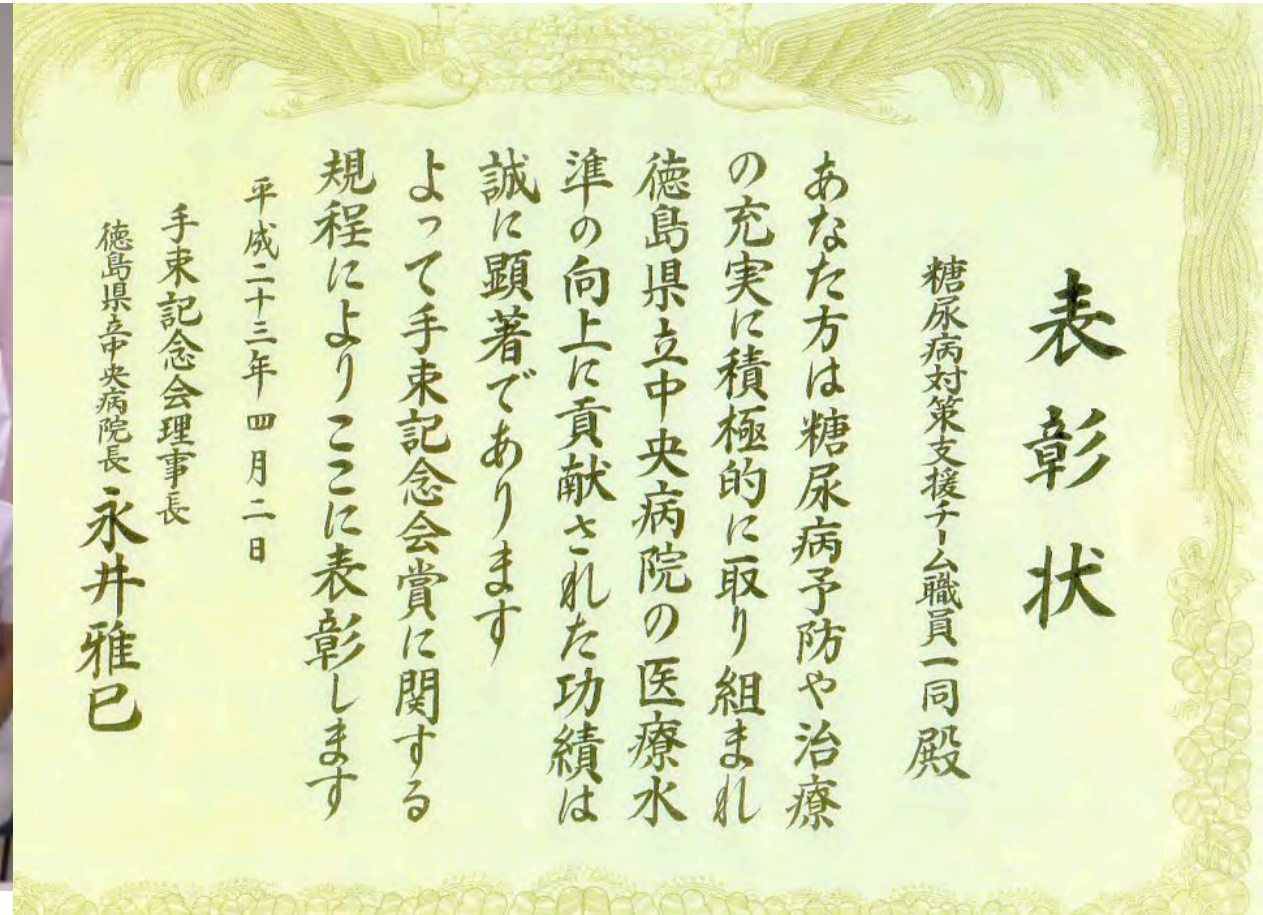 表彰状
糖尿病対策支援チーム職員一同殿
あなた方は糖尿病予防や治療
の充実に積極的に取り組まれ
徳島県立中央病院の医療水
準の向上に貢献された功績は
誠に顕著であります
よって手束記念会賞に関する
規程によりここに表彰します
平成二十三年四月二日
手束記念会理事長
徳島県立中央病院長 永井雅巳